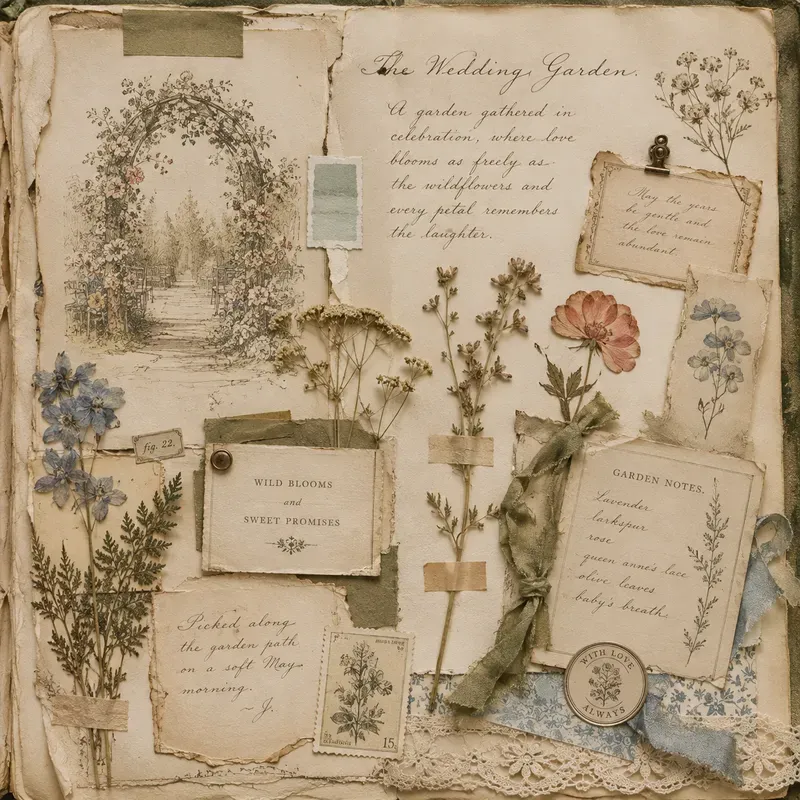 The Wedding Garden.
A garden gathered in
celebration, where love
blooms as freely as
the wildflowers and
every petal remembers
the laughter.
May the years
be gentle and
the love remain
abundant
fig. 22.
WILD BLOOMS
and
SWEET PROMISES
GARDEN NOTES.
Lavender
larkspur
rose
queen anne's lace
olive leaves
baby's breath
Picked along
the garden path
on a soft May
morning.
~ J.
15
WITH LOVE
ALWAYS